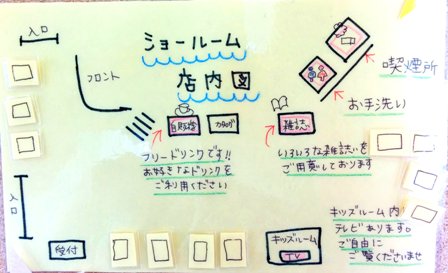 入口
ショールーム
店内図
喫煙所
フロント
お手洗い
自販機
カタログ
雑誌
フリードリンクです!!
お好きなドリンクを
ご利用ください
いろいろな雑誌を
ご用意しております
入口
受付
キッズルーム
TV
キッズルーム内
テレビあります。
ご自由に
ご覧くださいませ